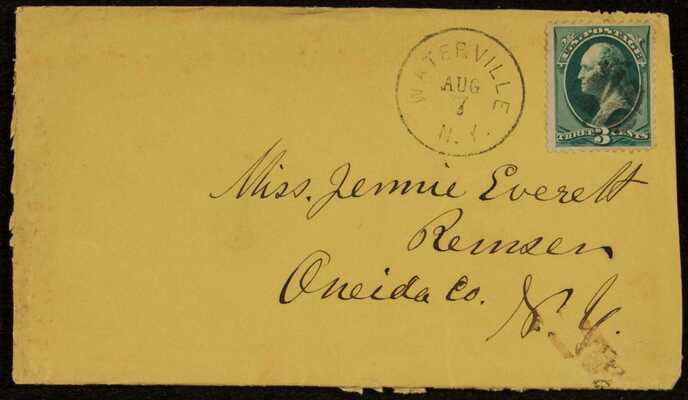 WATERVILLE
AUG
7
N.Y.
U.S. POSTAGE
THREE 3 CENTS
Miss. Jennie Everett
Remsen
Oneida Co. N.Y.